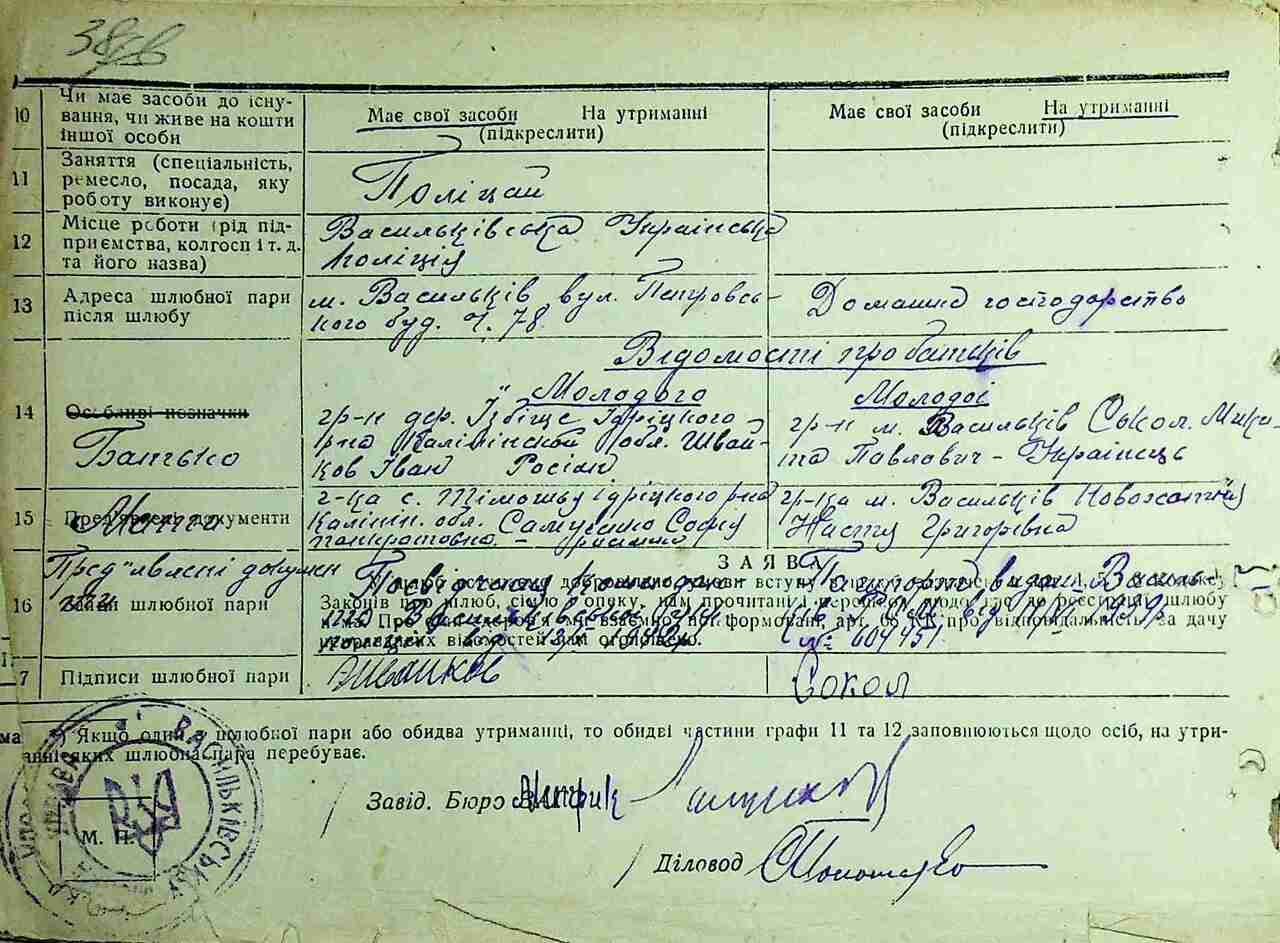 38 зв
10 Чи має засоби до існу- Має свої засоби На утриманні Має свої засоби На утриманні
вання, чи живе на кошти (підкреслити) (підкреслити)
іншої особи
11 Заняття (спеціальність,
ремесло, посада, яку Поліцай
роботу виконує)
12 Місце роботи (рід під- Васильківська Українська
приємства, колгосп і т. д. поліція
та його назва)
13 Адреса шлюбної пари м. Васильків вул. Петровсь- Домашнє господарство
після шлюбу кого буд. ч. 78
Відомості про батьків
Молодого Молодої
14 Особливі позначки гр-н дер. Ізбіще Ідріцкого гр-н м. Васильків Сокол Мики-
Батько р-на Калінінской обл. Швай- та Павлович - Українець
ков Іван Росіян
15 Пред'явлені документи г-ка с. Тімошы Ідріцкого р-на гр-ка м. Васильків
Мати Калінін. обл. Софія Настя Григорівна
панкратовна
ЗАЯВА
Пред'явлені докумен
16 Заяви шлюбної пари
Законів про шлюб, сім'ю і опіку, нам прочитані і перешкод щодо до реєстрації шлюбу
нема. Про стан здоров'я ми взаємно поінформовані, арт. КК про відповідальність за дачу
неправдивих відомостей нам оголошено.
№ 604451
7 Підписи шлюбної пари Швайков Сокол
ма Якщо один з шлюбної пари або обидва утриманці, то обидві частини графи 11 та 12 заповнюються щодо осіб, на утри-
манні яких шлюбна пара перебуває.
Завід. Бюро
ВАСИЛЬКІВСЬКА
УПРАВА
М. П.
Діловод